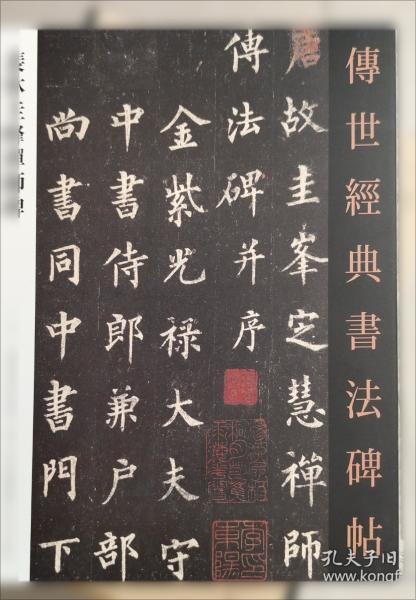 傳世經典書法碑帖
唐故圭峯定慧禪師
傳法碑并序
金紫光祿大夫守
中書侍郎兼户部
尚書同中書門下
孔夫子旧书网